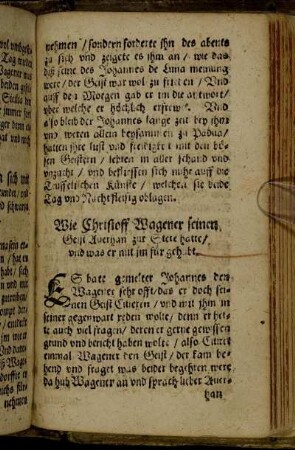 nehmen / sondern forderte ihn des abents
zu sich vnd zeigete es ihm an / wie das
diß seine des Johannes de Luna meinung
were / der Geist war wol zu frieden / Vnd
auff den Morgen gab er im die antwort /
der welche er höchlich erfrewt. Vnd
also bleib der Johannes lange zeit bey ihm
vnd weren allein beysammen zu Padua /
hatten ihre lust vnd frewdigkeit mit den bö-
sen Geistern / lebten in aller schand vnd
vnzucht / vnd beflissen sich mehr auff die
Teuffelischen Künste / welchen sie beide
Tag vnd Nacht fleissig oblagen.
Wie Christoff Wagener seinen
Geist Auerhan zur Stete hatte /
vnd was er mit im für gehabt.
ES bate gemelter Johannes den
Wagener sehr offt / das er doch sei-
nen Geist Citieren / vnd mit ihm in
seiner gegenwart reden wolte / denn er het-
te auch viel fragen / deren er gerne gewissen
grund vnd bericht haben wolte / also Citiert
einmal Wagener den Geist / der kam be-
hend vnd fraget was beider begehren were /
da hub Wagener an vnd sprach lieber Auer-
han